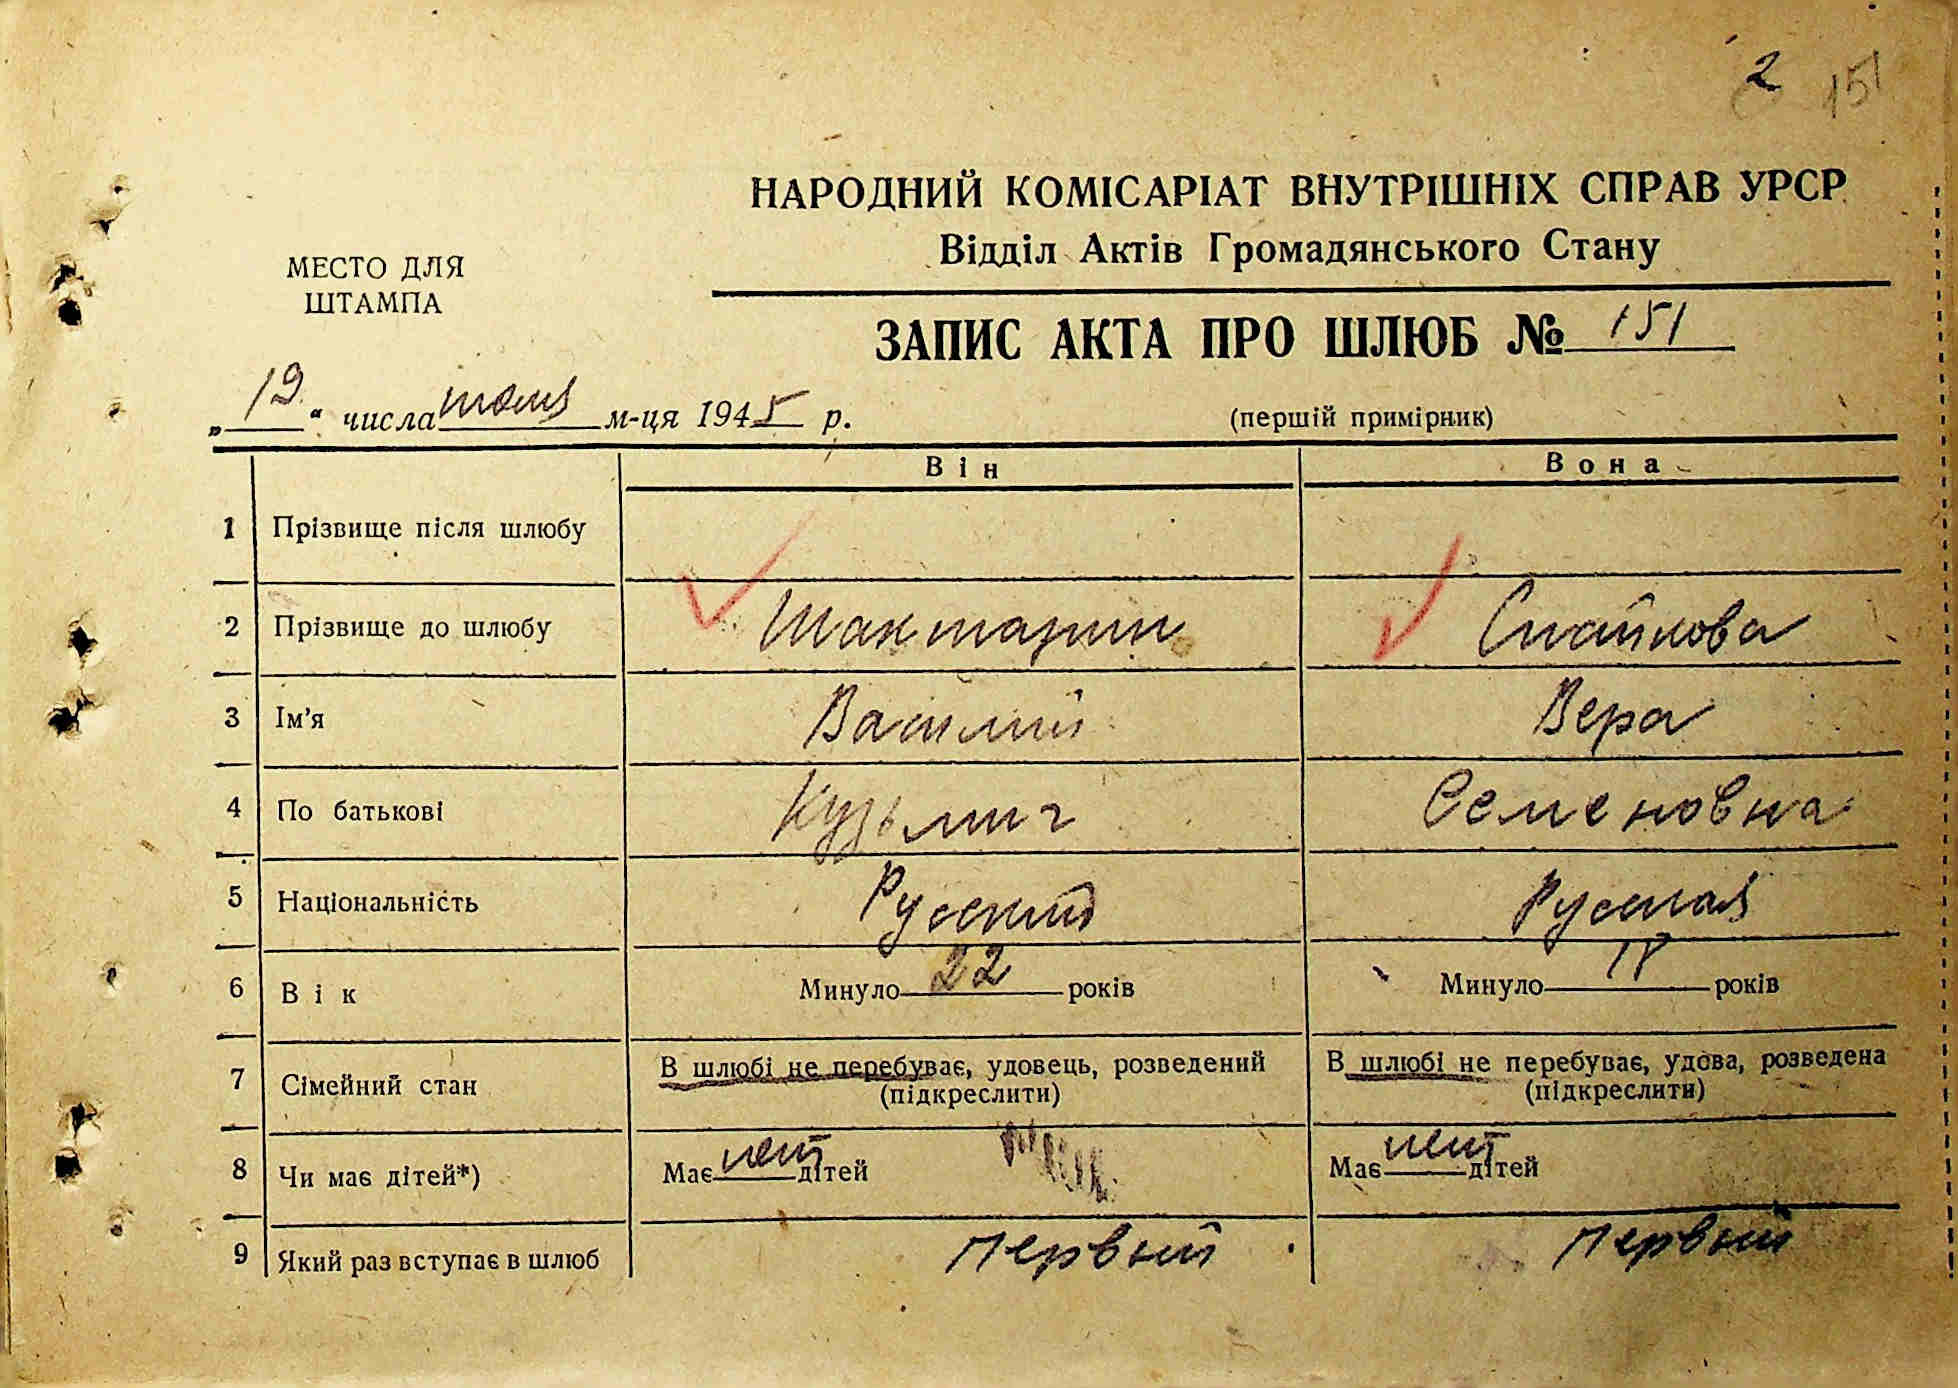 2 151
НАРОДНИЙ КОМІСАРІАТ ВНУТРІШНІХ СПРАВ УРСР
Відділ Актів Громадянського Стану
МЕСТО ДЛЯ
ШТАМПА
ЗАПИС АКТА ПРО ШЛЮБ № 151
„19“ числа июля м-ця 1945 р.
(першій примірник)
Він Вона
1 Прізвище після шлюбу
2 Прізвище до шлюбу Шахтарин
3 Ім'я Василий Вера
4 По батькові Кузьмич Семеновна
5 Національність Русский Русская
6 Вік Минуло 22 років Минуло 18 років
7 Сімейний стан В шлюбі не перебуває, удовець, розведений В шлюбі не перебуває, удова, розведена
(підкреслити) (підкреслити)
8 Чи має дітей*) Має нет дітей Має нет дітей
9 Який раз вступає в шлюб Первый Первый